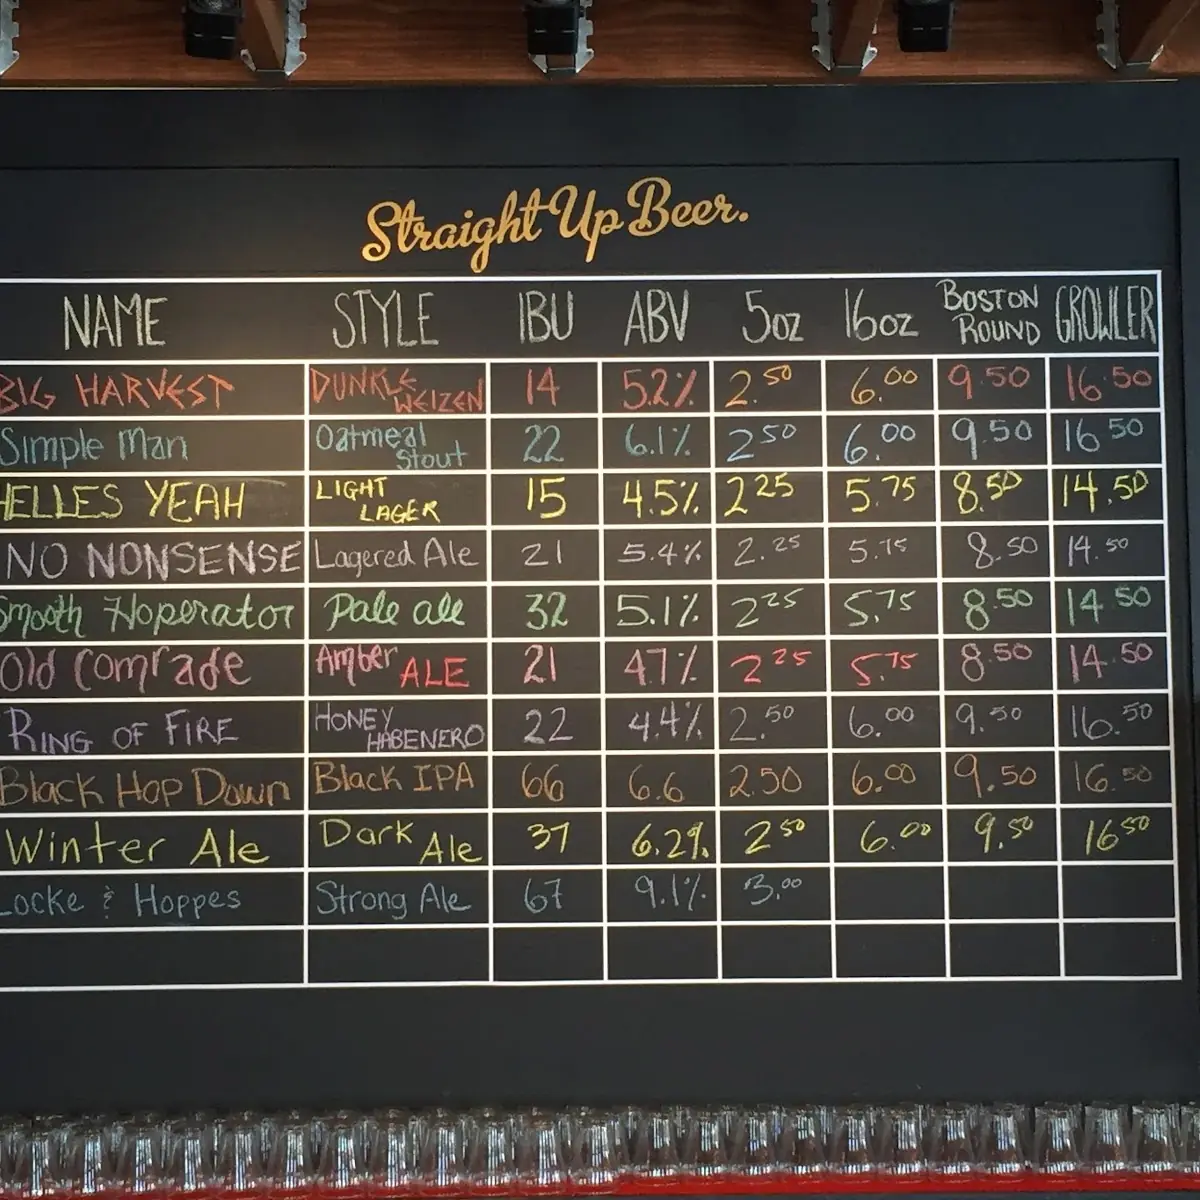 Straight Up Beer.
NAME STYLE IBU ABV 5oz 16oz BOSTON ROUND GROWLER
BIG HARVEST DUNKLE WEIZEN 14 5.2% 2.50 6.00 9.50 16.50
Simple Man Oatmeal Stout 22 6.1% 2.50 6.00 9.50 16.50
HELLES YEAH LIGHT LAGER 15 4.5% 2.25 5.75 8.50 14.50
NO NONSENSE Lagered Ale 21 5.4% 2.25 5.75 8.50 14.50
Smooth Hoperator Pale ale 32 5.1% 2.25 5.75 8.50 14.50
Old Comrade Amber ALE 21 4.7% 2.25 5.75 8.50 14.50
RING OF FIRE HONEY HABENERO 22 4.4% 2.50 6.00 9.50 16.50
Black Hop Down Black IPA 66 6.6 2.50 6.00 9.50 16.50
Winter Ale Dark Ale 37 6.2% 2.50 6.00 9.50 16.50
Locke & Hoppes Strong Ale 67 9.1% $3.00